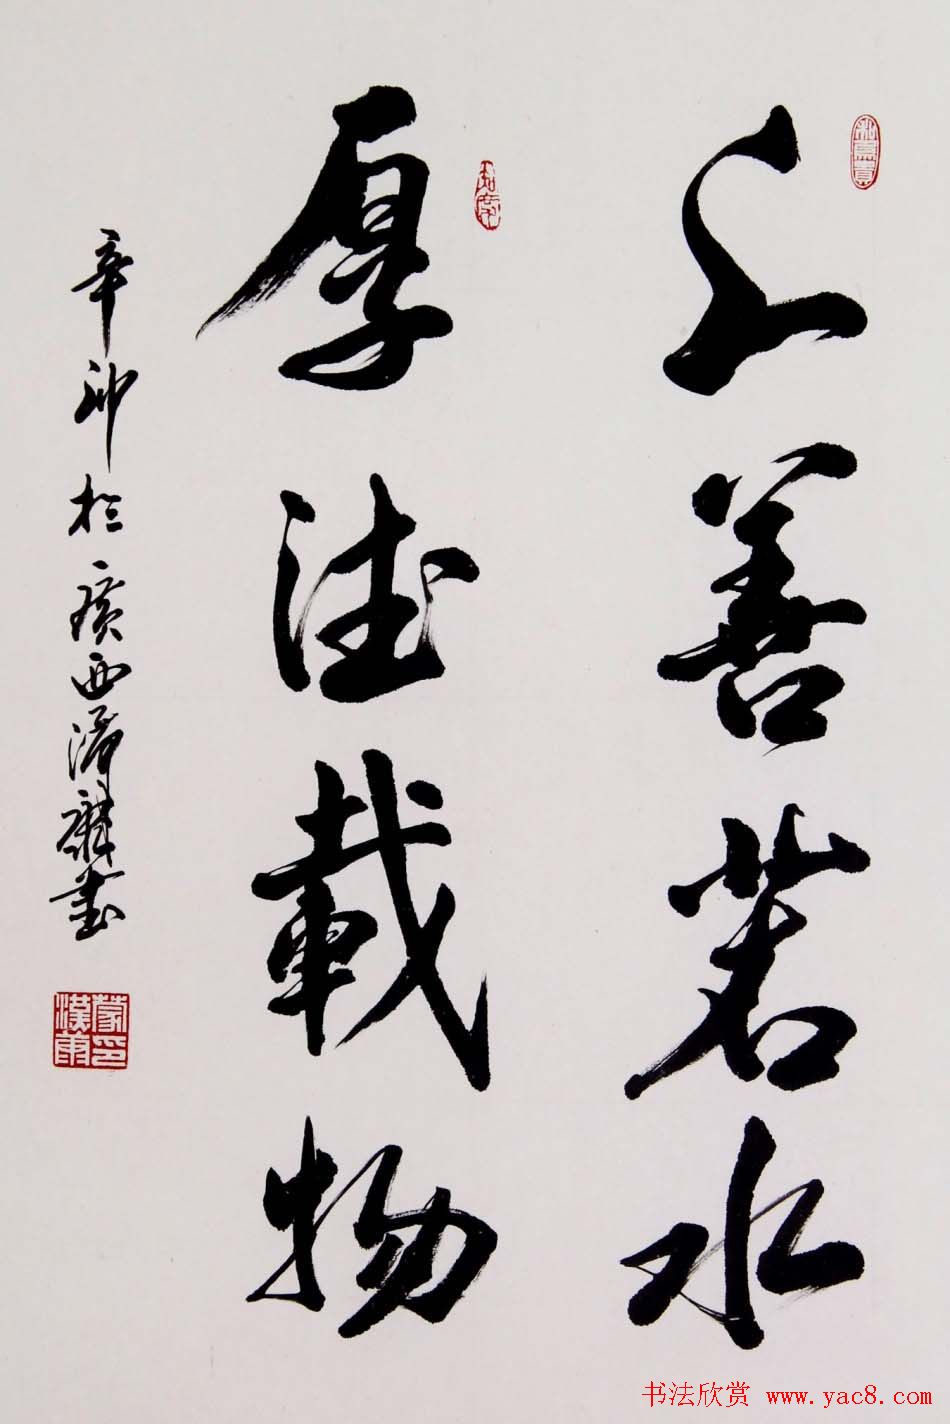 上善若水
厚德載物
辛卯於廣西濤麟書
蒙印漢甫
书法欣赏 www.yac8.com